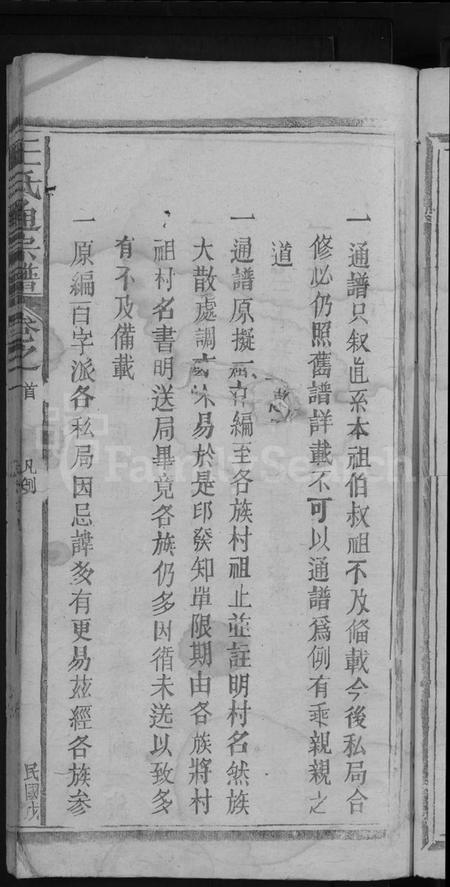 一通譜只叙直系本祖伯叔祖不及偹載今後私局合
修必仍照舊譜詳載不可以通譜爲例有乖親親之
道
一通譜原擬 編至各族村祖止並註明村名然族
大散處調 易於是印發知單限期由各族將村
祖村名書明送局畢竟各族仍多因循未送以致多
有不及備載
一原編百字派各私局因忌諱多有更易茲經各族参
王氏通宗譜
卷之首
凡例
民國戊
FamilySearch